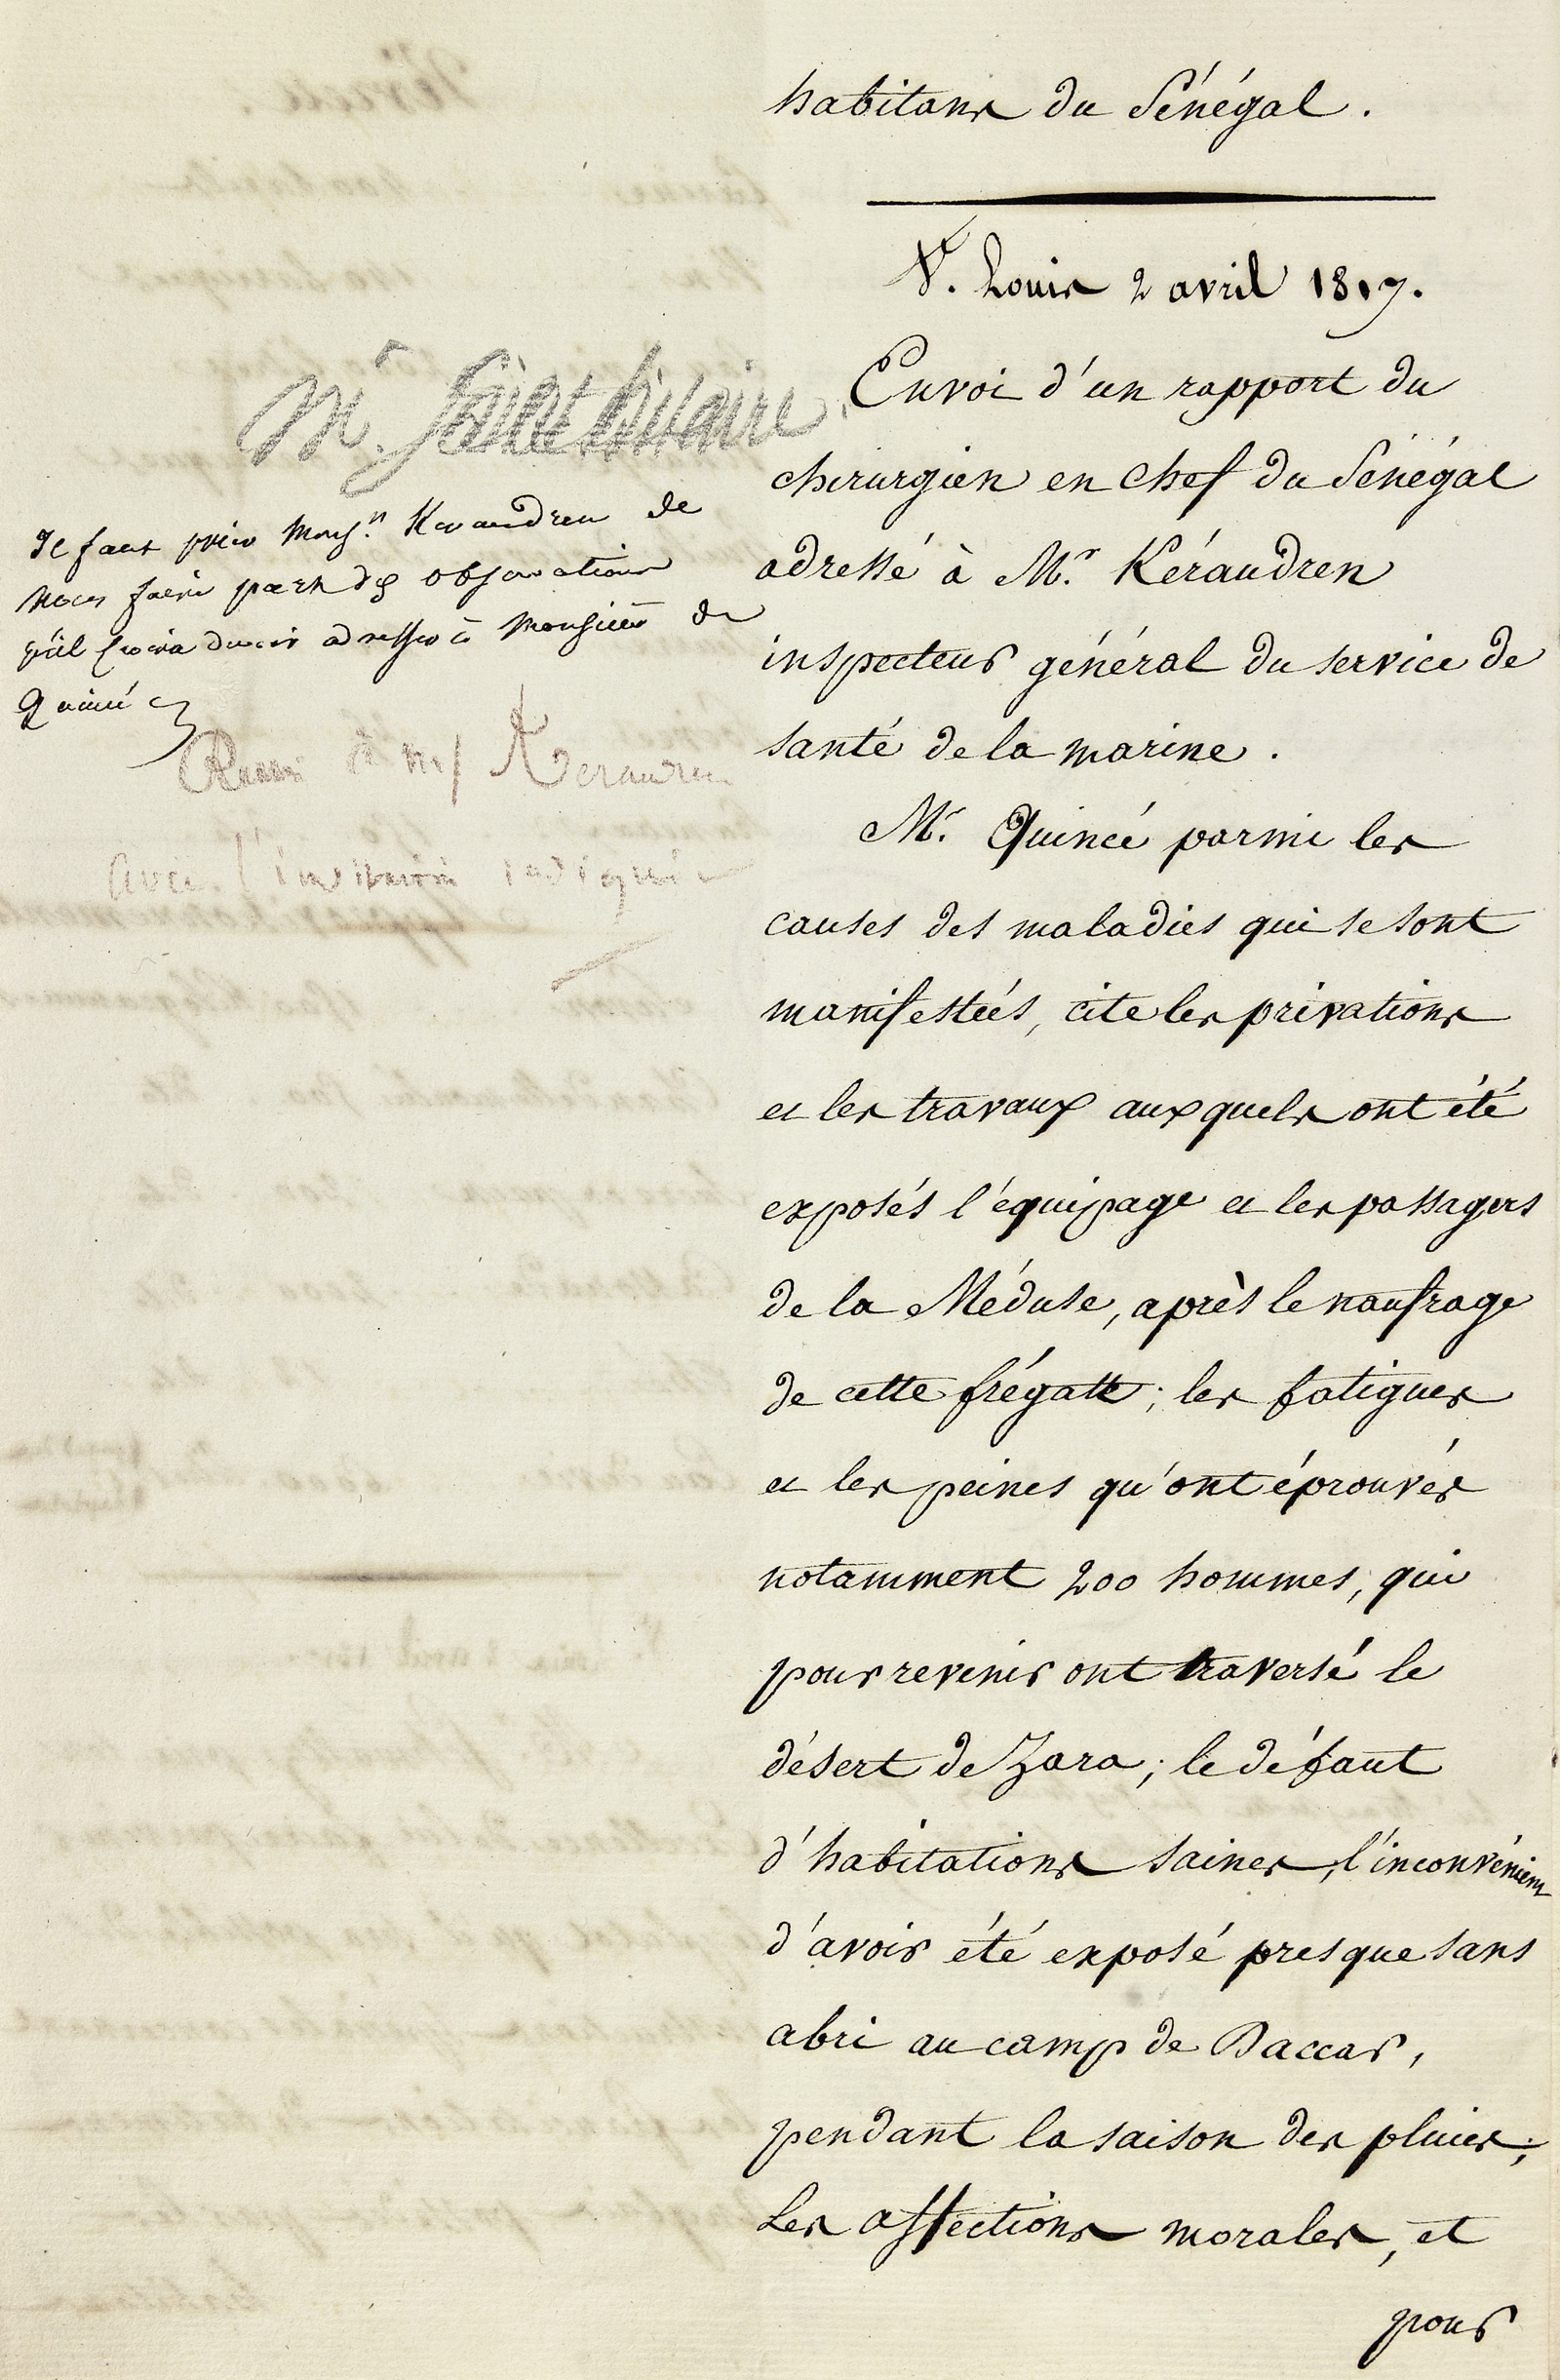 habitans du Sénégal.
St. Louis 2 avril 1817.
Envoi d'un rapport du
chirurgien en chef du Sénégal
adressé à Mr. Kéraudren
inspecteur général du service de
santé de la marine.
Mr. Quincé parmi les
causes des maladies qui se sont
manifestées, cite les privations
et les travaux auxquels ont été
exposés l'équipage et les passagers
de la Méduse, après le naufrage
de cette frégatte; les fatigues
et les peines qu'ont éprouvés
notamment 200 hommes, qui
pour revenir ont traversé le
désert de Zara; le défaut
d'habitations saines, l'inconvénient
d'avoir été exposé presque sans
abri au camp de Daccar,
pendant la saison des pluies;
Les affections morales, et
pour
Mr.
Il faut prier Monsr. Keraudren de
nous faire part des observations
qu'il croira devoir adresser à Monsieur de
Quincé
à Mr Keraudren
avec l'invitation indiquée